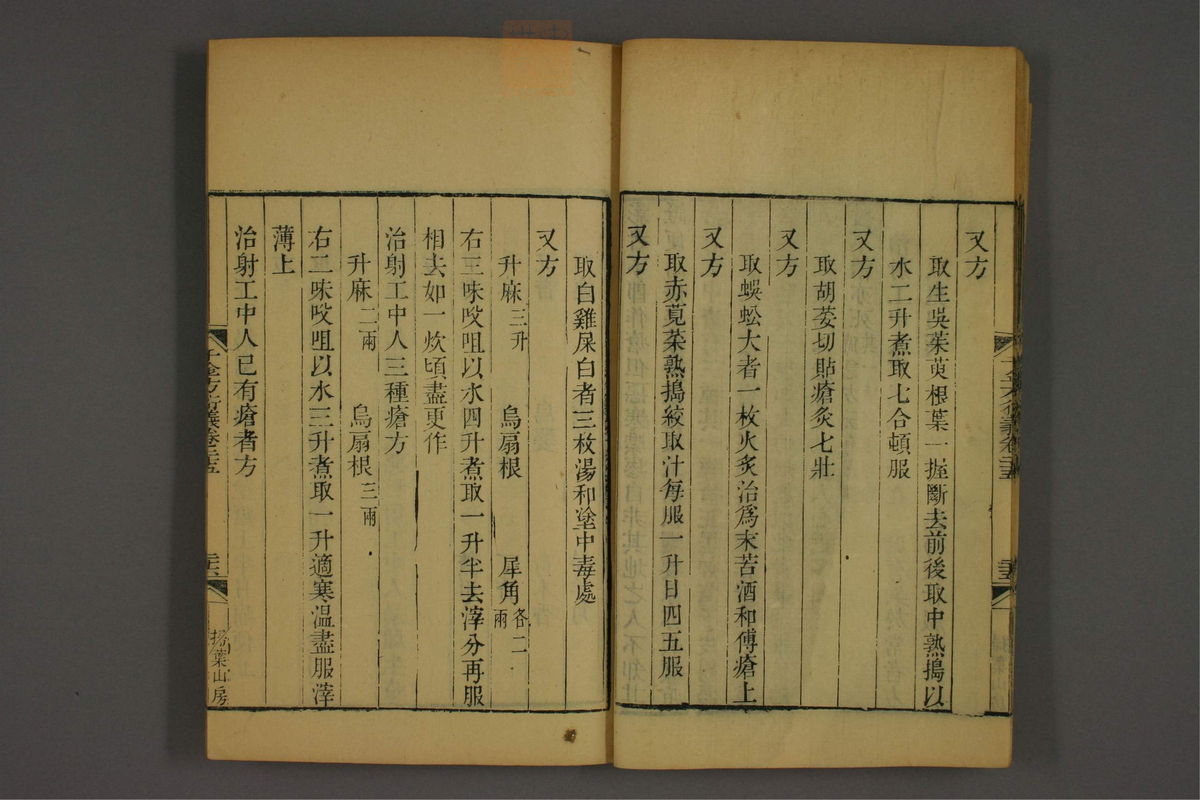 又方
取生吳茱萸根葉一握斷去前後取中熟搗以
水二升煮取七合頓服
又方
取胡荽切貼瘡灸七壯
又方
取蜈蚣大者一枚火炙治爲末苦酒和傅瘡上
又方
取赤莧莖熟搗絞取汁每服一升日四五服
又方
取白雞屎白者三枚湯和塗中毒處
又方
升麻三升 烏扇根 犀角各二兩
右三味㕮咀以水四升煮取一升半去滓分再服
相去如一炊頃盡更作
治射工中人三種瘡方
升麻二兩 烏扇根三兩
右二味㕮咀以水三升煮取一升適寒溫盡服滓
薄上
治射工中人已有瘡者方
千金方衍義卷二十五
掃葉山房